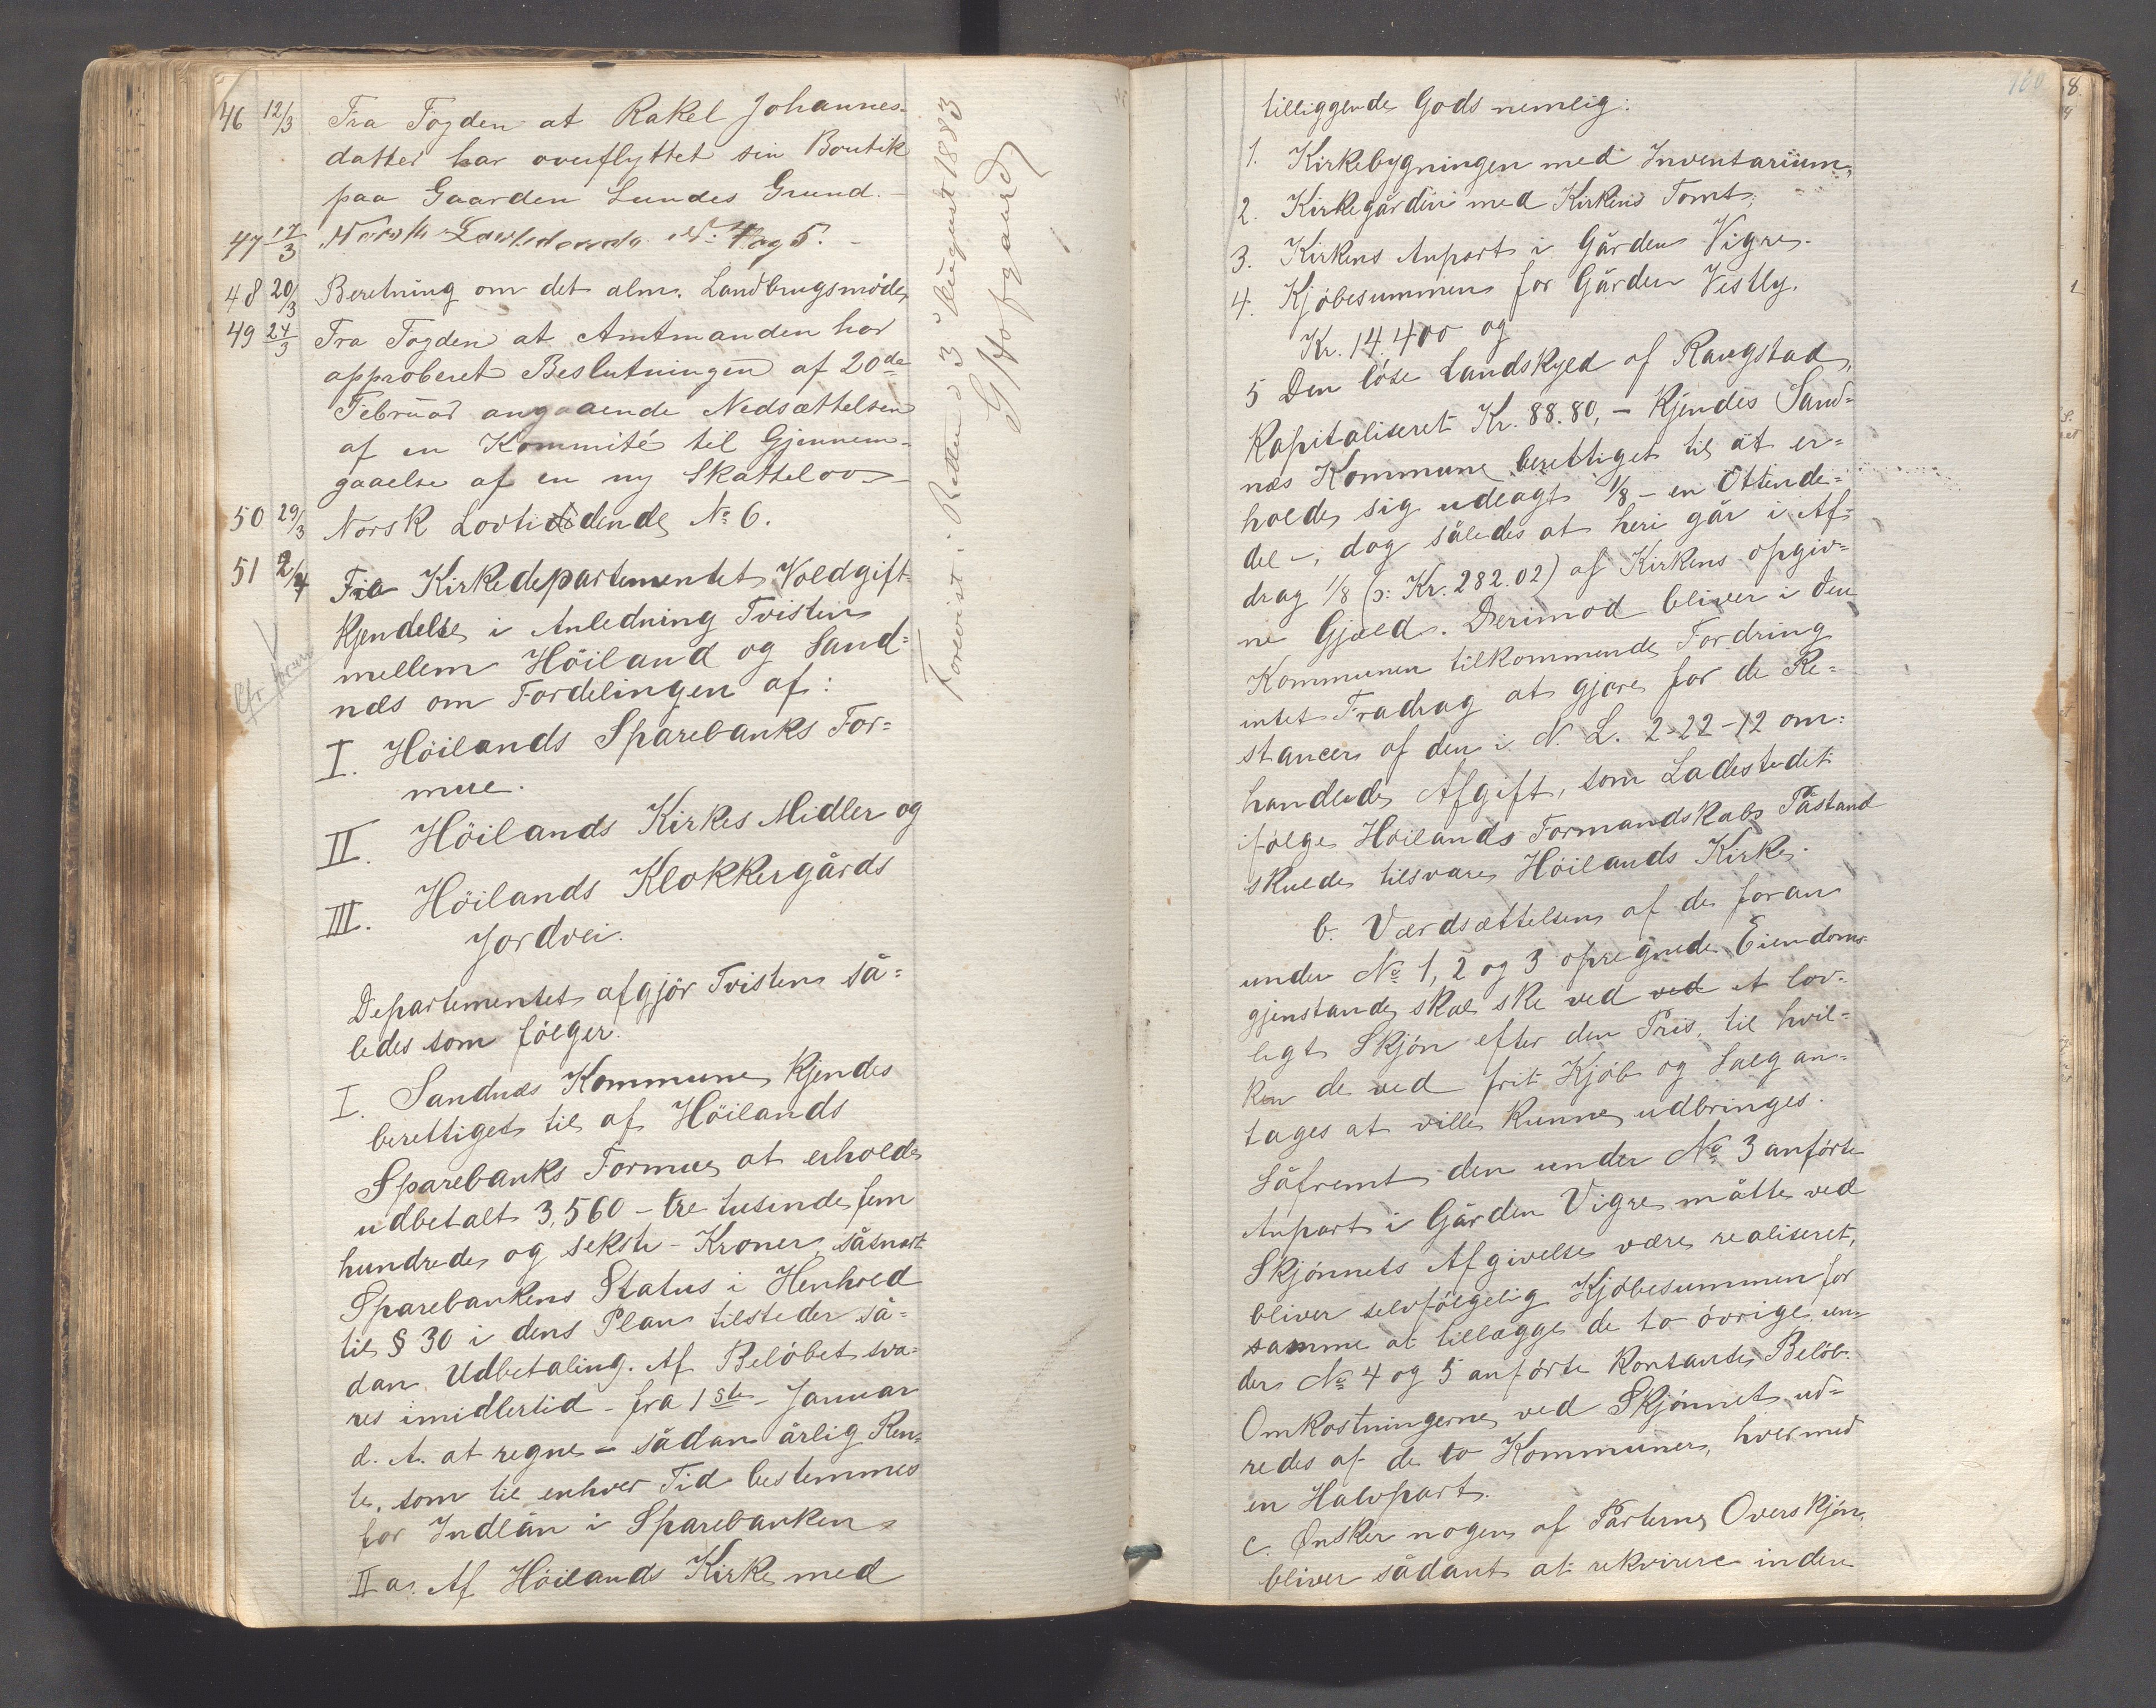 46 12/3 Fra Fogden at Rakel Johannes-
datter har overflyttet sin Boutik
paa Gaarden Lundes Grund.
47 17/3 Norsk Lovtidende No 4 og 5.
48 20/3 Beretning om det alm. Landbrugsmøde
49 24/3 Fra Fogden at Amtmanden har
approberet Beslutningen af 20de
Februar angaaende Nedsættelsen
af en Kommité til Gjennem-
gaaelse af en ny Skattelov
50 29/3 Norsk Lovtidende No 6.
51 2/4 Fra Kirkedepartementet Voldgift-
Kjendelse i Anledning Tvisten
mellem Höiland og Sand=
næs om Fordelingen af:
I. Höilands Sparebanks For=
mue.
II. Höilands Kirkes Midler og
III. Höilands Klokkergårds
Jordvei.
Departementet afgjör Tvisten så=
ledes som følger.
I. Sandnæs Kommune kjendes
berettiget til af Höilands
Sparebanks Formue at erholde
udbetalt 3,560 - tre tusinde fem
hundrede og seksti - Kroner, såsnart
Sparebankens Status i Henhold
til § 30 i dens Plan tilsteder så=
dan Udbetaling. Af Beløbet sva=
res imidlertid - fra 1ste Januar
d. A. at regne - sådan årlig Ren=
te, som til enhver Tid bestemmes
for Indlån i Sparebanken
II a. Af Höilands Kirke med
Forevist i Retten d 3 August 1883
tilliggende Gods nemlig:
1. Kirkebygningen med Inventarium,
2. Kirkegården med Kirkens Tomt,
3. Kirkens Anpart i Gården Vigre.
4. Kjøbesummen for Gården Vestly.
Kr. 14.400 og
5 Den løse Landskyld af Raugstad,
Kapitaliseret Kr. 88.80, - Kjendes Sand=
næs Kommune berettiget til at er=
holde sig udlagt 1/8 - en Ottende=
del -, dog således at heri går i Af=
drag 1/8 (ɔ: Kr. 282.02) af Kirkens opgiv=
ne Gjæld. Derimod bliver i den
Kommunen tilkommende Fordring
intet Fradrag at gjøre for de Re=
stancer af den i N. L. 2-22-12 om=
handlede Afgift, som Ladestedet
ifølge Höilands Formandskabs Påstand
skulde tilsvare Höilands Kirke.
b. Værdsættelsen af de foran
under No 1, 2 og 3 opregnede Eiendoms-
gjenstande skal ske ved ved et lov-
ligt Skjøn efter den Pris, til hvil-
ken de ved frit Kjøb og Salg an=
tages at ville kunne udbringes.
Såfremt den under No 3 anførte
Anpart i Gården Vigre måtte ved
Skjønnets Afgivelse være realiseret,
bliver selvfølgelig Kjøbesummen for
samme at tillægge de to øvrige un=
der No 4 og 5 anførte kontante Beløb.
Omkostningerne ved Skjønnet ud=
redes af de to Kommuner, hver med
en Halvpart.
c. Ønsker nogen af Parterne Overskjøn,
bliver sådant at rekvirere inden